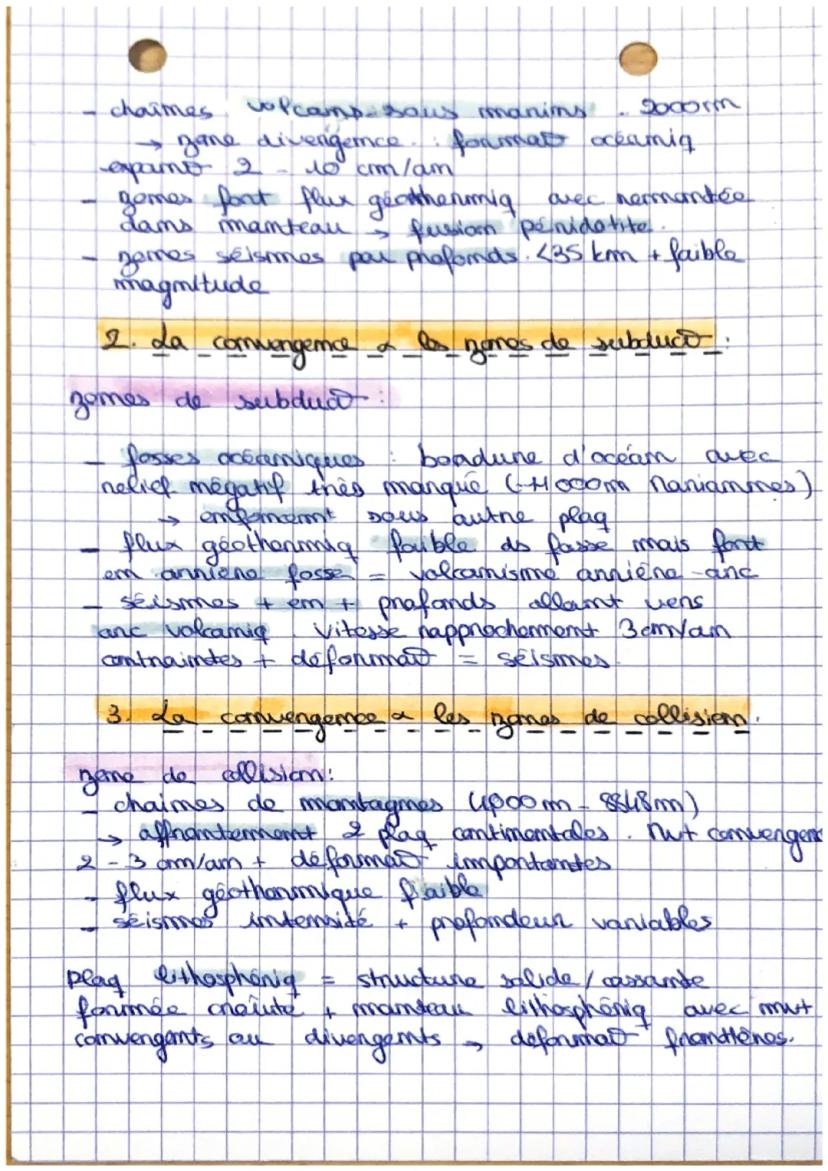 - chaînes volcans sous marins . 2000m
→ zone divergence : format° océaniq
expans° 2 - 10 cm/an
- zones fort flux géothermiq avec remontée
dans manteau → fusion péridotite.
- zones séismes peu profonds. <35 km + faible
magnitude
2. La convergence & les zones de subduct° :
zones de subduct° :
- fosses océaniques : bordure d'océan avec
relief négatif très marqué (-11000m Mariannes)
→ enfoncemt sous autre plaq
- flux géothermiq faible ds fosse mais fort
en arrière fosse = volcanisme arrière-arc
- séismes + en + profonds allant vers
arc volcaniq . vitesse rapprochement 3cm/an
contraintes + déformat° = séismes.
3. La convergence & les zones de collision.
zone de collision:
- chaînes de montagnes (4000m - 8848m)
→ affrontement 2 plaq continentales . mvt convergen
2 - 3 cm/an + déformat° importantes
- flux géothermique faible
- séismes intensité + profondeur variables
Plaq lithosphériq = structure solide / cassante
formée croûte + manteau lithosphériq avec mvt
convergents ou divergents → déformat° frontières.